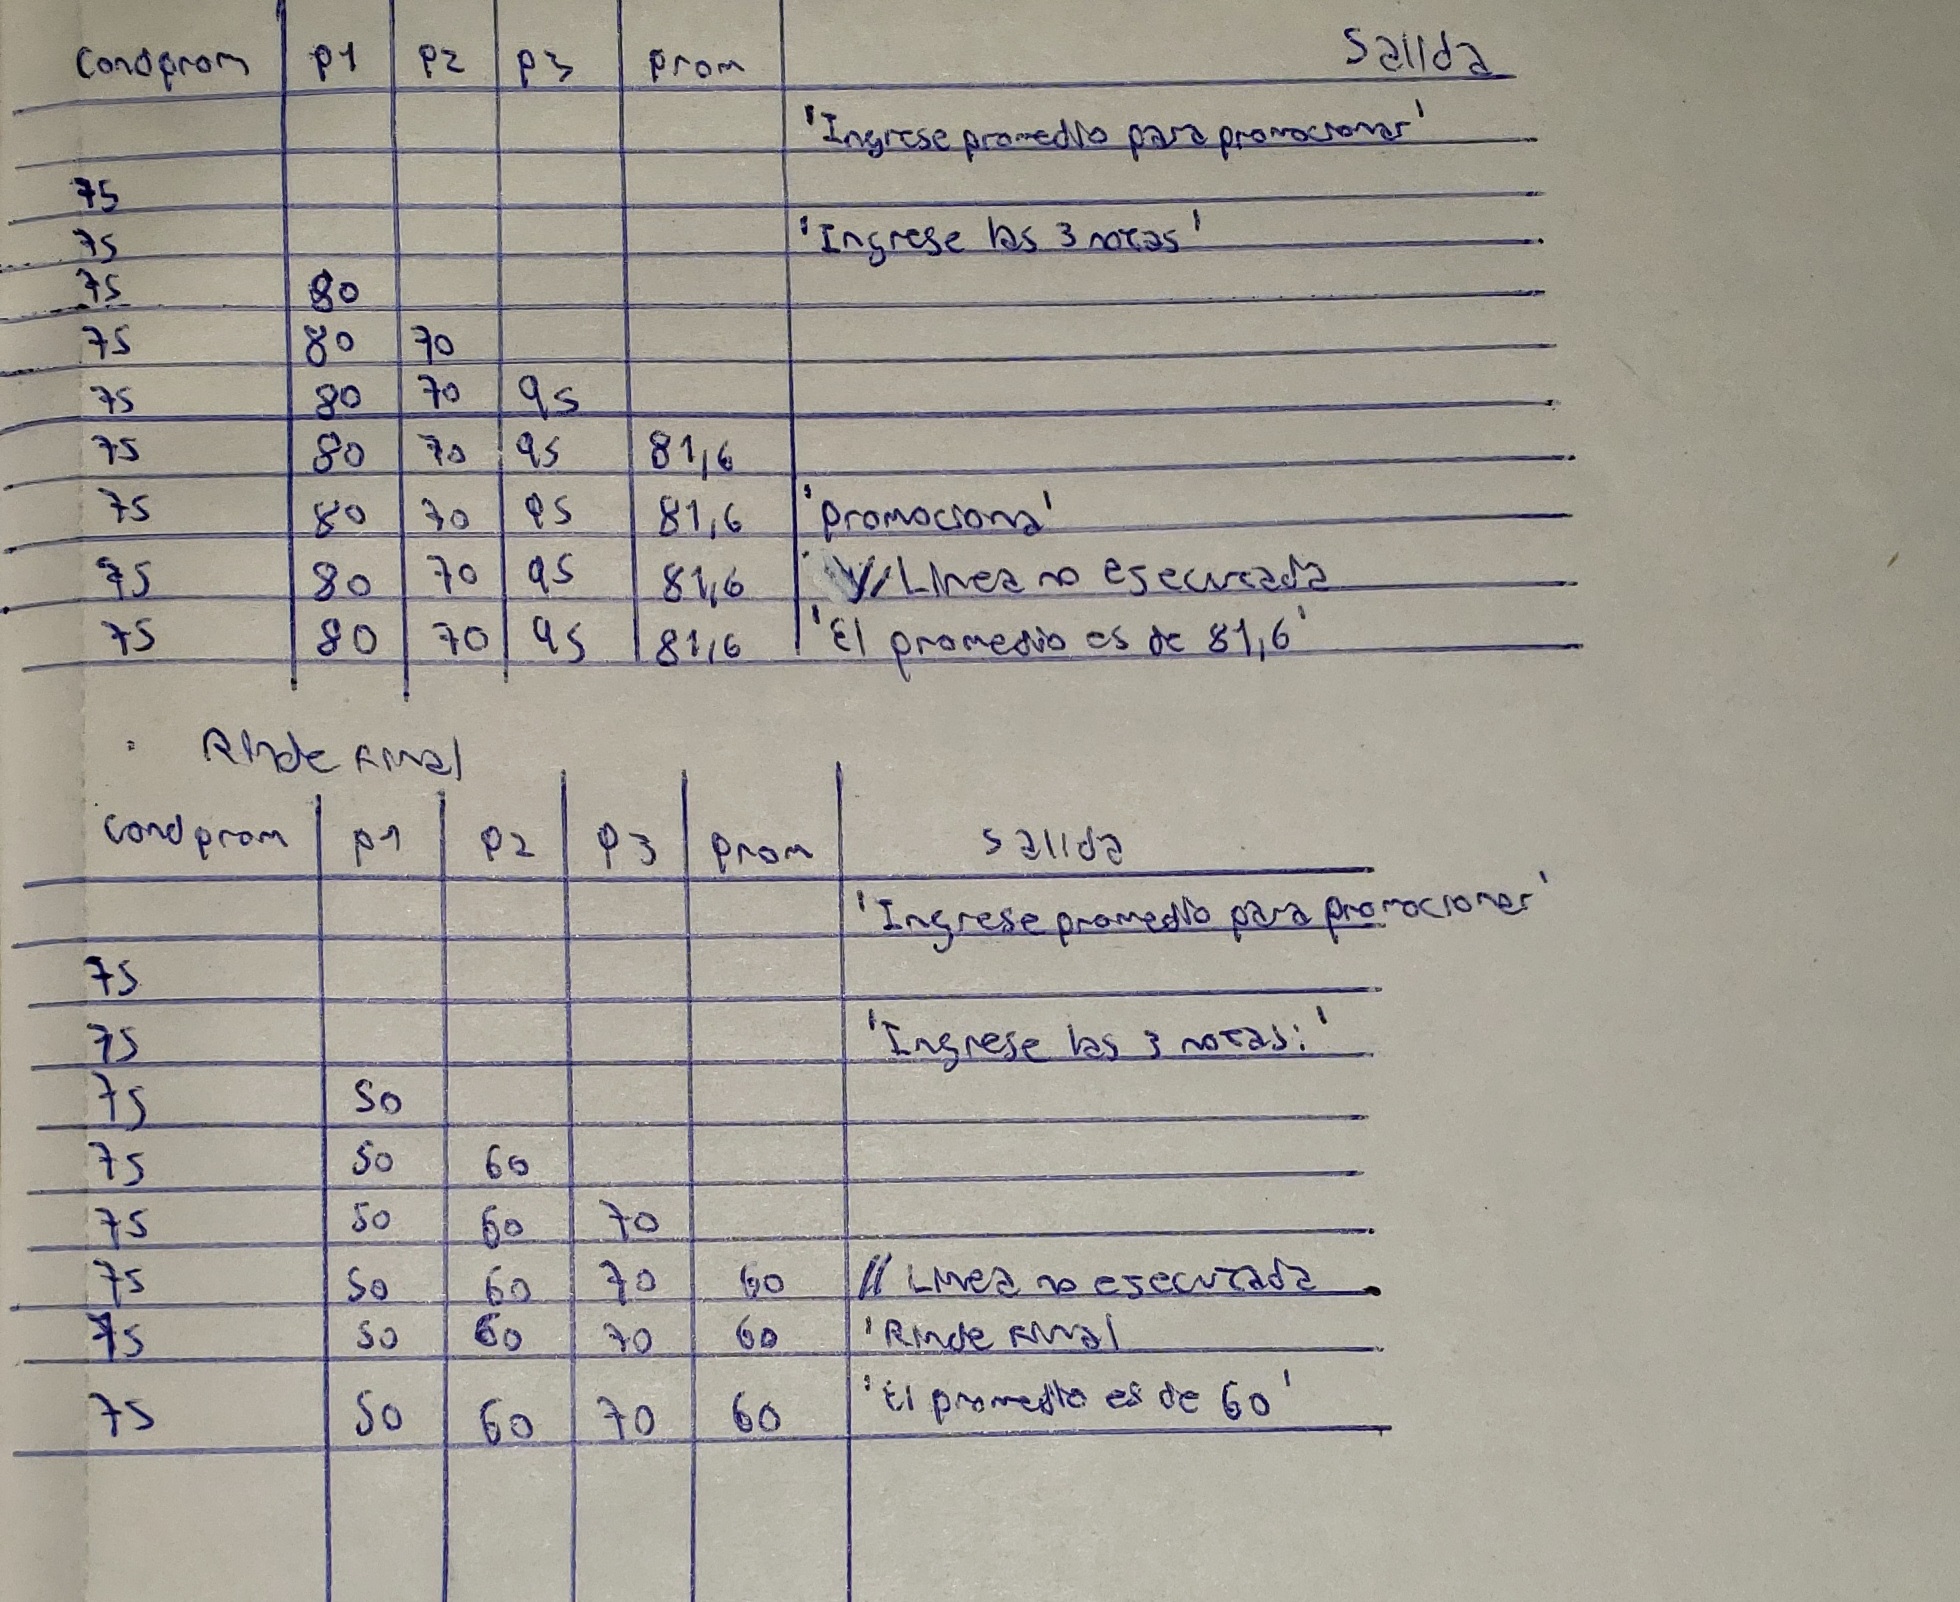 Condprom P1 P2 P3 Prom Salida
'Ingrese promedio para promocionar'
75
75 'Ingrese las 3 notas'
75 80
75 80 70
75 80 70 95
75 80 70 95 81,6
75 80 70 95 81,6 'promociona'
75 80 70 95 81,6 // Linea no ejecutada
75 80 70 95 81,6 'El promedio es de 81,6'
Rinde Final
Condprom P1 P2 P3 Prom Salida
'Ingrese promedio para promocionar'
75
75 'Ingrese las 3 notas:'
75 50
75 50 60
75 50 60 70
75 50 60 70 60 // Linea no ejecutada
75 50 60 70 60 'Rinde Final
75 50 60 70 60 'El promedio es de 60'